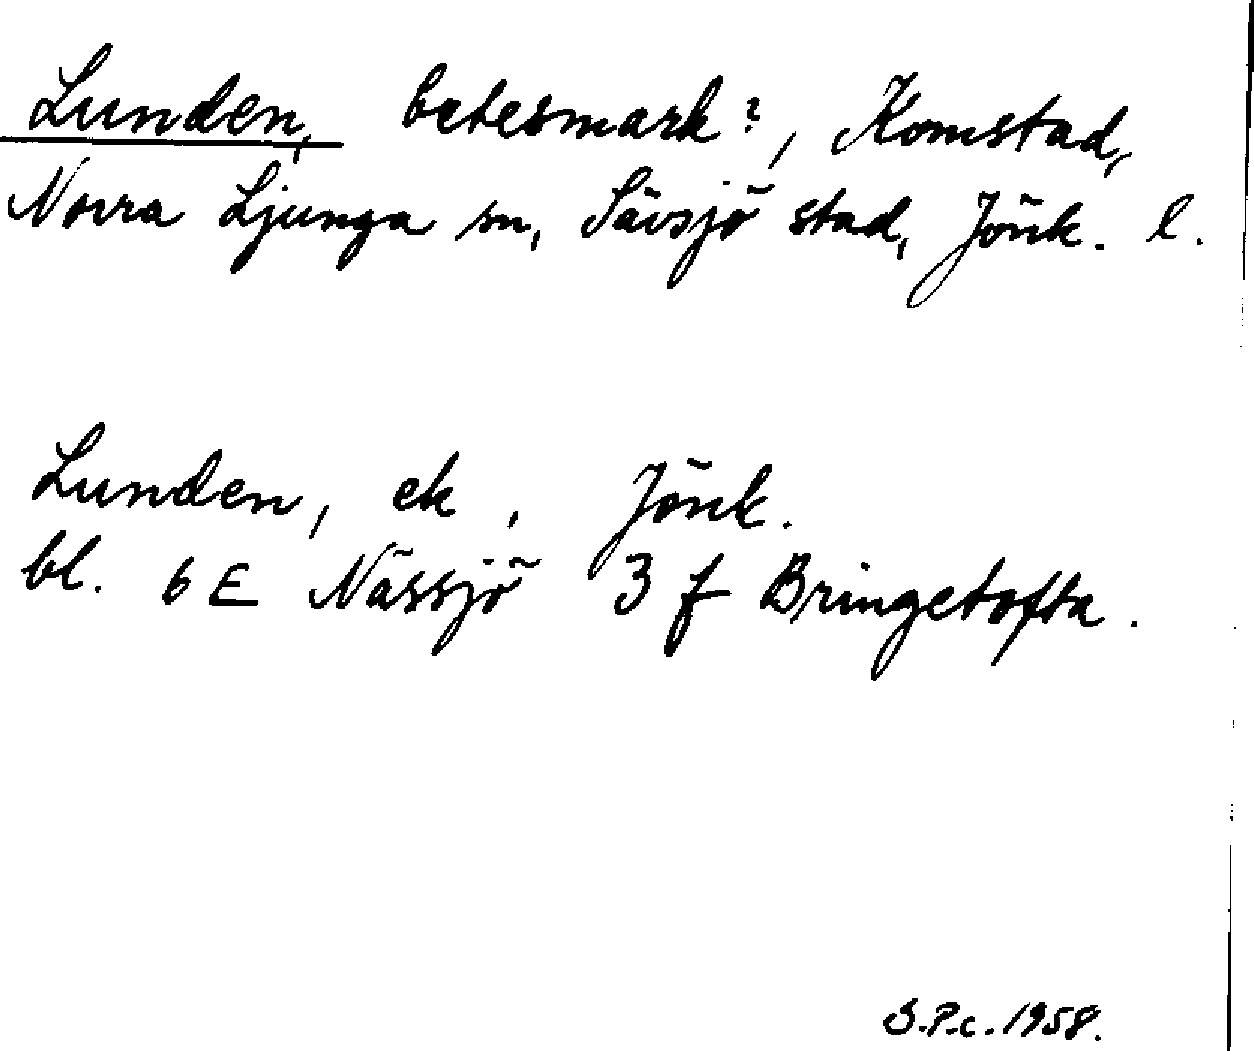 Lunden, betesmark?, Komstad,
Norra Ljunga sn, Sävsjö stad, Jönk. l.
Lunden, ek, Jönk.
bl. 6 E Nässjö 3 f Bringetofta.
S.P.c. 1958.